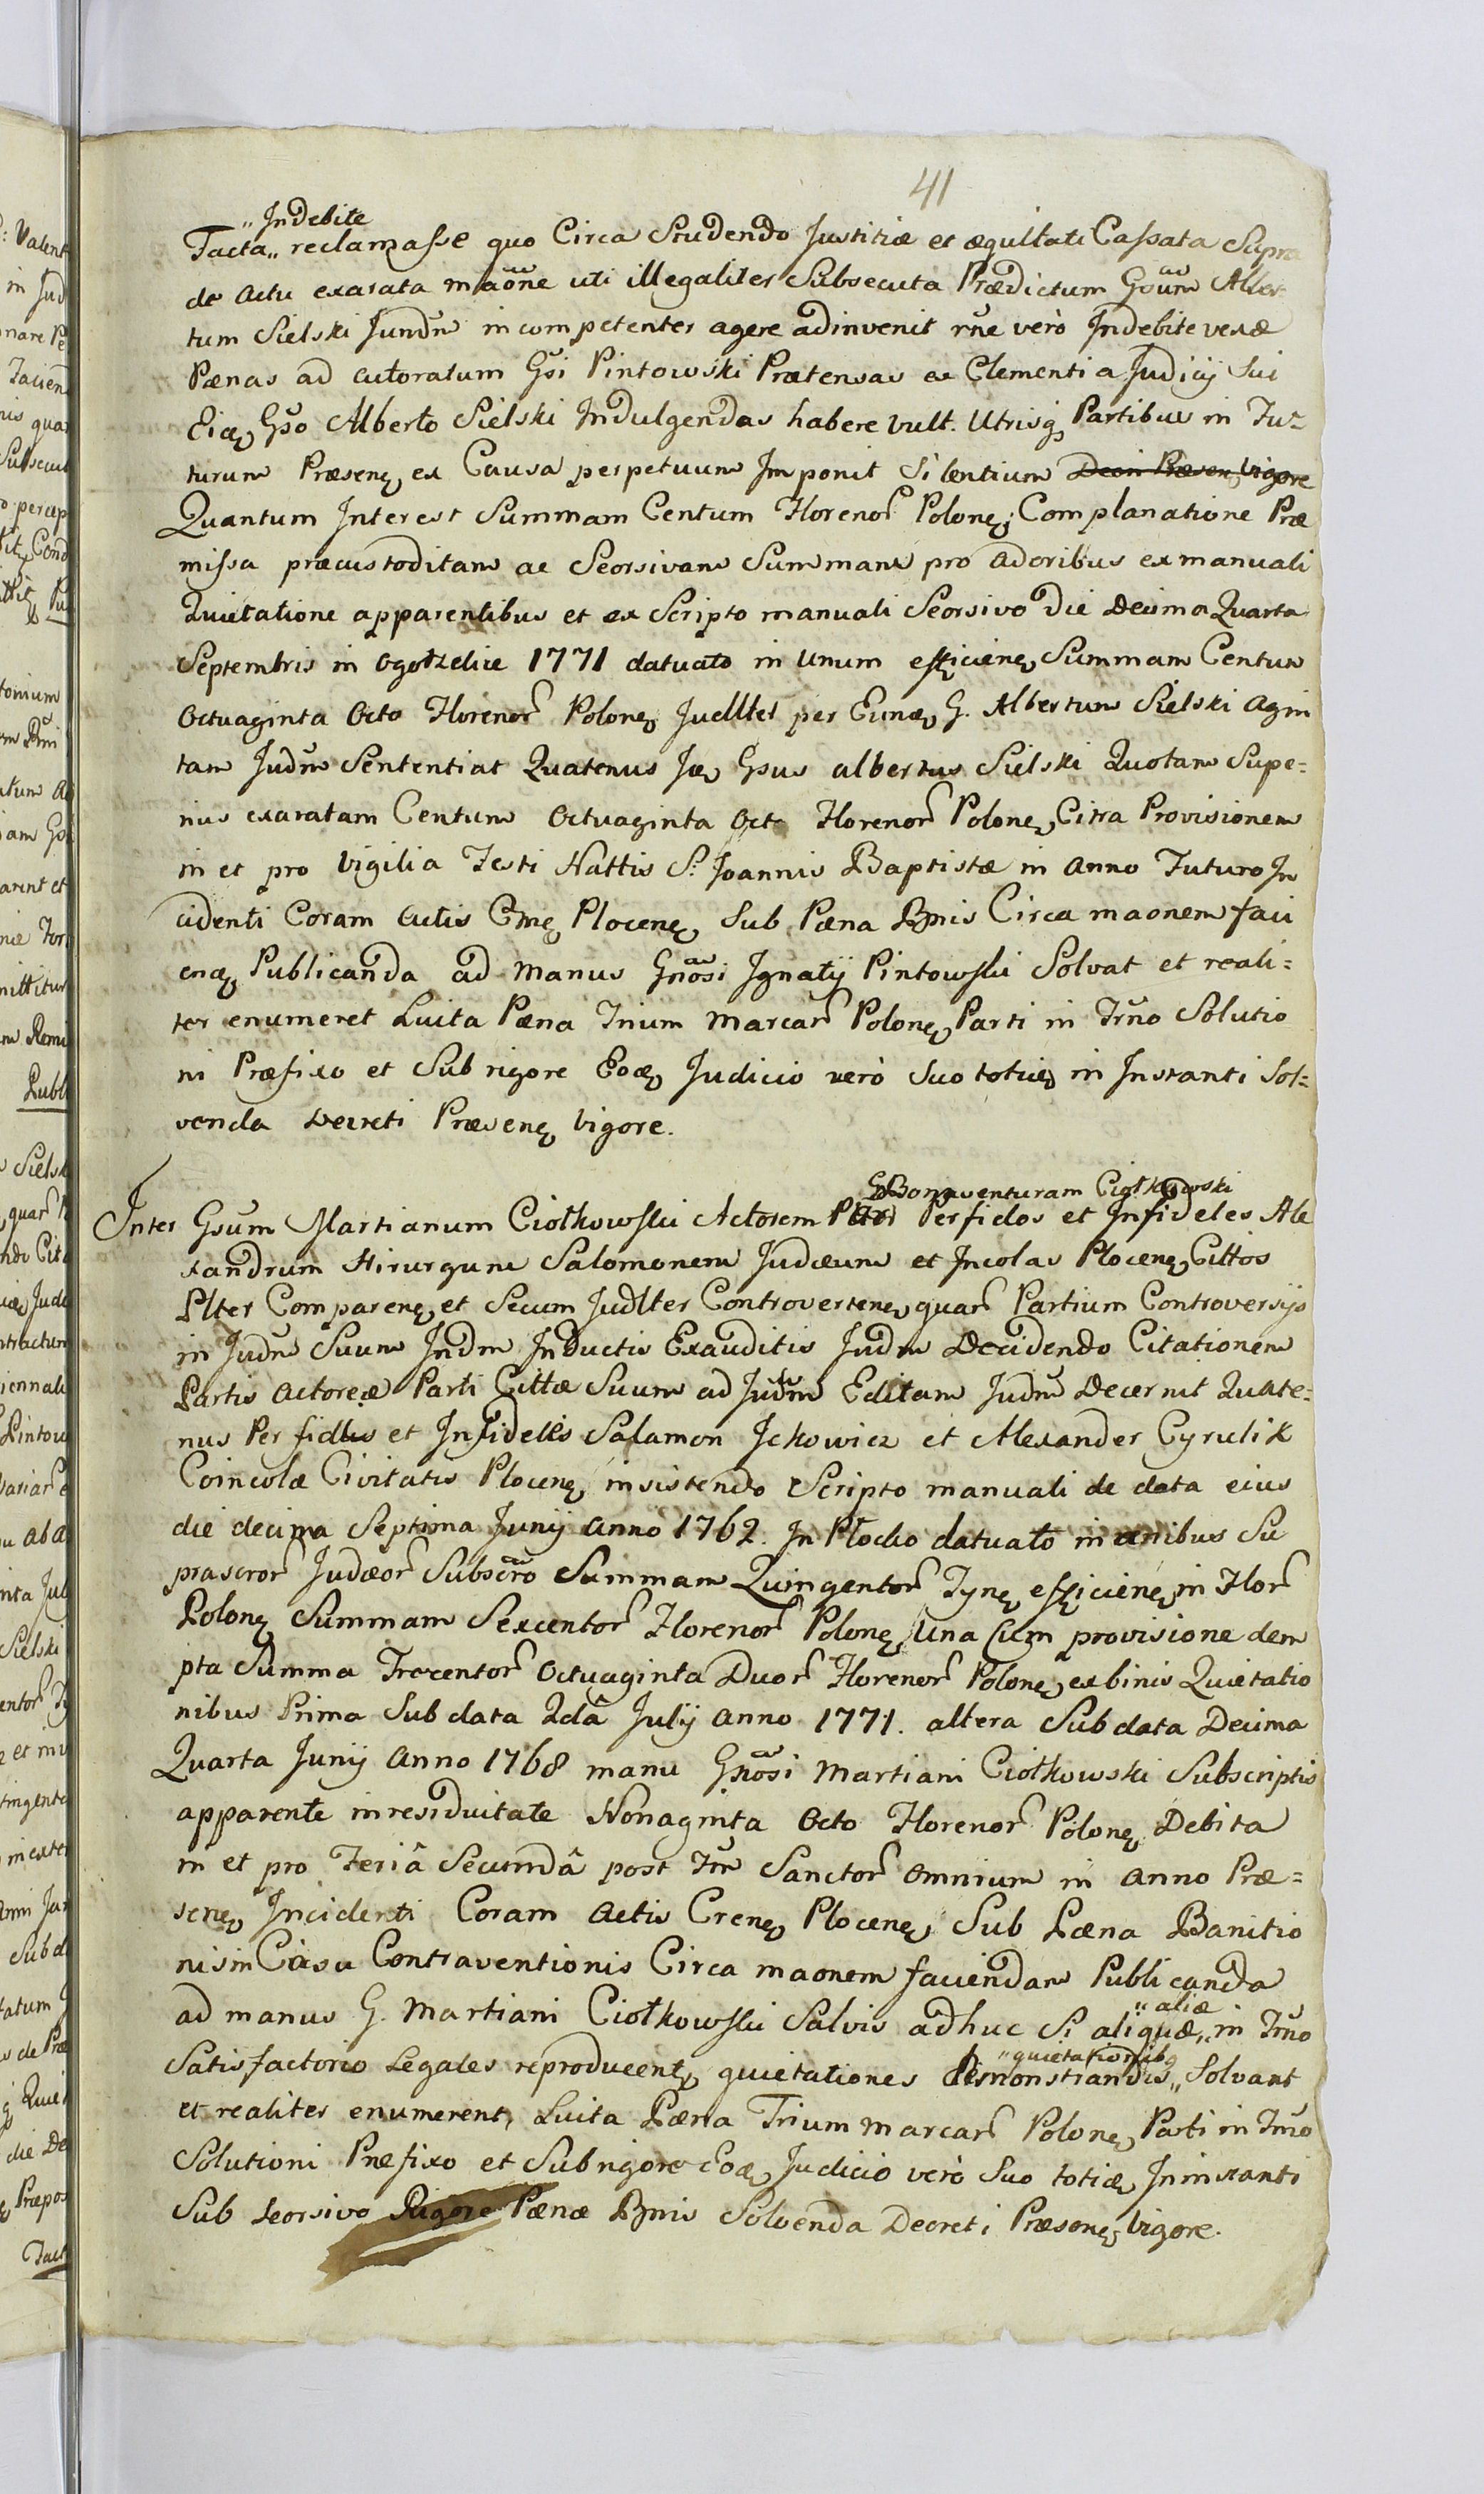 41
„Indebite
Tacta„ reclamasse quo Circa Studendo Justitiæ et æquitati Cassata Supra
de Actu exarata maone uti illegaliter Subsecuta Prædictum Gsum Alber-
tum Sielski Judm incompetenter agere adinvenit rne verò Indebite vexæ
Pænas ad actoratum Gsi Pintowski Prætensas ex Clementia Judicij Sui
Eidę Gso Alberto Sielski Indulgendas habere vult. Utrisqȝ Partibus in Fu-
turum Præsenę ex Causa perpetuum Imponit Silentium Decri Præsenę Vigore
Quantum Interest Summam Centum Florenor Polonę; Complanatione Præ
missa præcustoditam ac Seorsivam Summam pro adoribus ex manuali
Quietatione apparentibus et ex Scripto manuali Seorsivo Die Decima Quarta
Septembris in Ogorzelice 1771 datuato in Unum efficienę Summam Centum
Octuaginta Octo Florenor Polonę Judllter per Eundę G. Albertum Sielski Agni
tam Judm Sententiat Quatenus Idę Gsus albertus Sielski Quotam Supe=
rius exaratam Centum Octuaginta Octo Florenor Polonę Citra Provisionem
in et pro Vigilia Festi Nattis S. Joannis Baptistæ in Anno Futuro In
cidenti Coram Actis Cnę Plocenę Sub Pæna Bnis Circa maonem faci
endę Publicanda ad Manus Gnosi Ignatij Pintowski Solvat et reali=
ter enumeret Luita Pæna Trium Marcar Polonę Parti in Trno Solutio
ni Præfixo et Sub rigore Eodę Judicio verò Suo totidę in Instanti Sol=
venda Decreti Præsenę Vigore.
G Bonaventuram Ciołkowski
Inter Gsum Martianum Ciołkowski Actorem Perfidos et Infideles Ale
xandrum Hirurgum Salomonem Judæum et Incolas Plocenę Cittos
Plter Comparenę et Secum Judlter Controvertenę quar Partium Controversijs
in Judm Suum Indm Inductis Exauditis Judm Decidendo Citationem
Partis Actoreæ Parti Cittæ Suum ad Judm Editam Judm Decernit Quate=
nus Perfidus et Infidelis Salamon Ickowicz et Alexander Cyrulik
Coincolæ Civitatis Plocenę insistendo Scripto manuali de data eius
die decima Septima Junij Anno 1762. In Płocko datuato manibus Su
prascror Judæor Subscro Summam Quingentor Tynę efficienę in Flor
Polonę Summam Sexcentor Florenor Polonę Una Cum provisione dem
pta Summa Trecentor Octuaginta Duor Florenor Polonę ex binis Quietatio
nibus Prima Sub data 2dâ Julij Anno 1771. altera Sub data Decima
Quarta Junij Anno 1768 manu Gnosi Martiani Ciołkowski Subscriptis
apparente in residuitate Nonaginta Octo Florenor Polonę Debita
in et pro Feriâ Secundâ post Fm Sanctor Omnium in Anno Præ=
senę Incidenti Coram Actis Crenę Plocenę Sub Pæna Banitio
nis in Casu Contraventionis Circa maonem faciendam Publicanda
ad manus G. Martiani Ciołkowski Salvis adhuc Si aliquæ„ in Trno
„aliæ
Satisfactorio Legales reproducentę quietationes Demonstrandis„ Solvant
„quietationibȝ
et realiter enumerent, Luita Pæna Trium Marcar Polonę Parti in Trno
Solutioni Præfixo et Sub rigore Eodę Judicio verò Suo totidę In instanti
Sub Seorsivo Rigore Pænæ Bnis Solvenda Decreti Præsenę Vigore.